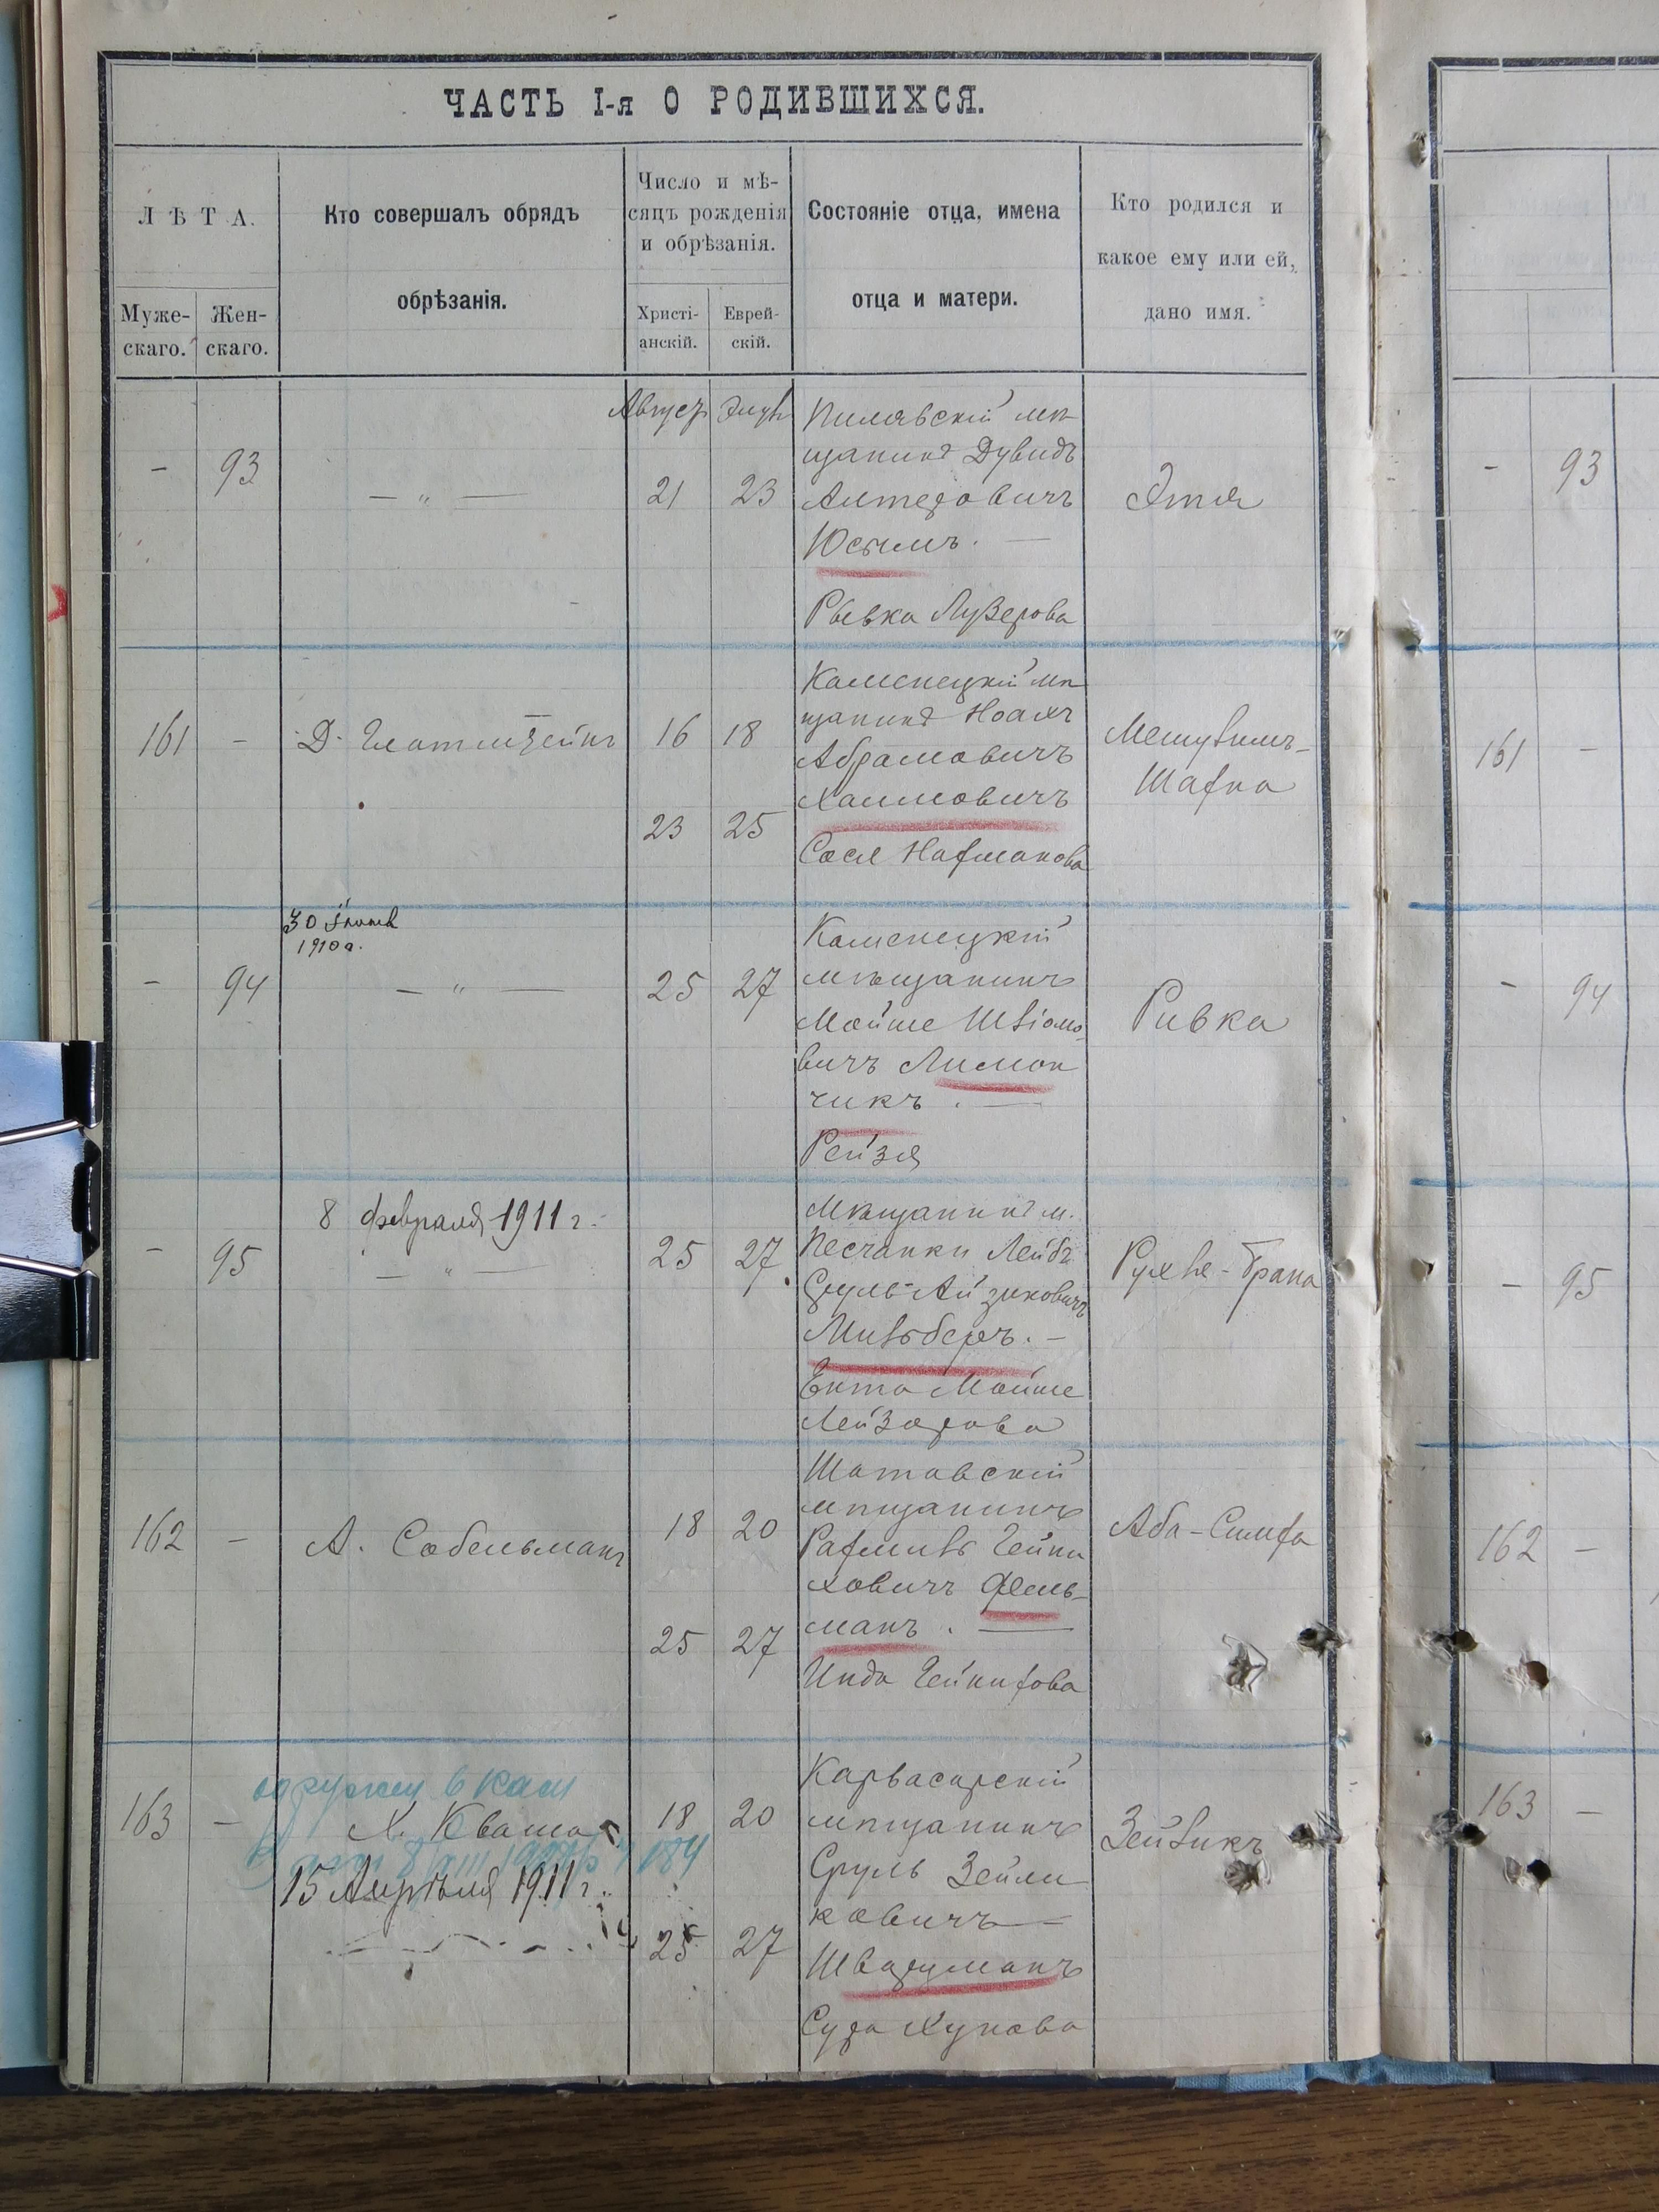 ЧАСТЬ I-я О РОДИВШИХСЯ.
ЛѢТА.
Муже-
скаго.
Жен-
скаго.
Кто совершалъ обрядъ
обрѣзанія.
Число и мѣ-
сяцъ рожденія
и обрѣзанія.
Христі-
анскій.
Еврей-
скій.
Состояніе отца, имена
отца и матери.
Кто родился и
какое ему или ей,
дано имя.
Августъ Элулъ
- 93 — „ — 21 23
Пилявскій мѣ-
щанинъ Дувидъ
Алтеровичъ
Юсимъ. —
Рывка Лузерова
Этля
- 93
161 - Д. Глатштейнъ 16 18
23 25
Каменецкій мѣ
щанинъ Ноахъ
Абрамовичъ
Хаимовичъ
Сося Нахманова
Мешулимъ-
Шахна
161 -
30
1910 г.
- 94 — „ — 25 27
Каменецкій
мѣщанинъ
Мойше Шліомо-
вичъ Лимон
чикъ. —
Рейзя
Ривка
- 94
8 февраля 1911 г.
- 95 — „ — 25 27
Мѣщанинъ м.
Песчанки Лейбъ
Сруль-Айзиковичъ
Мильберъ. —
Ента Мойше
Лейзерова
Рухле-Брана
- 95
162 - А. Собельманъ 18 20
25 27
Шатавскій
мѣщанинъ
Рахмиль Гейни
ховичъ Фель-
манъ. —
Инда Гейнихова
Аба-Симха
162 -
163 - Х. Кваша 18 20
184
15 Апрѣля 1911 г.
25 27
Карвасарскій
мѣщанинъ
Сруль Зейли
ковичъ —
Шварцманъ
Сура Хунова
Зейликъ
163 -